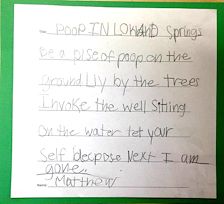 POOP IN LOWAND Springs
Be a pise of poop on the
ground Liy by the trees
Invoke the well Sitting
On the water let your
Self decpose Next I am
gone.
Name Matthew